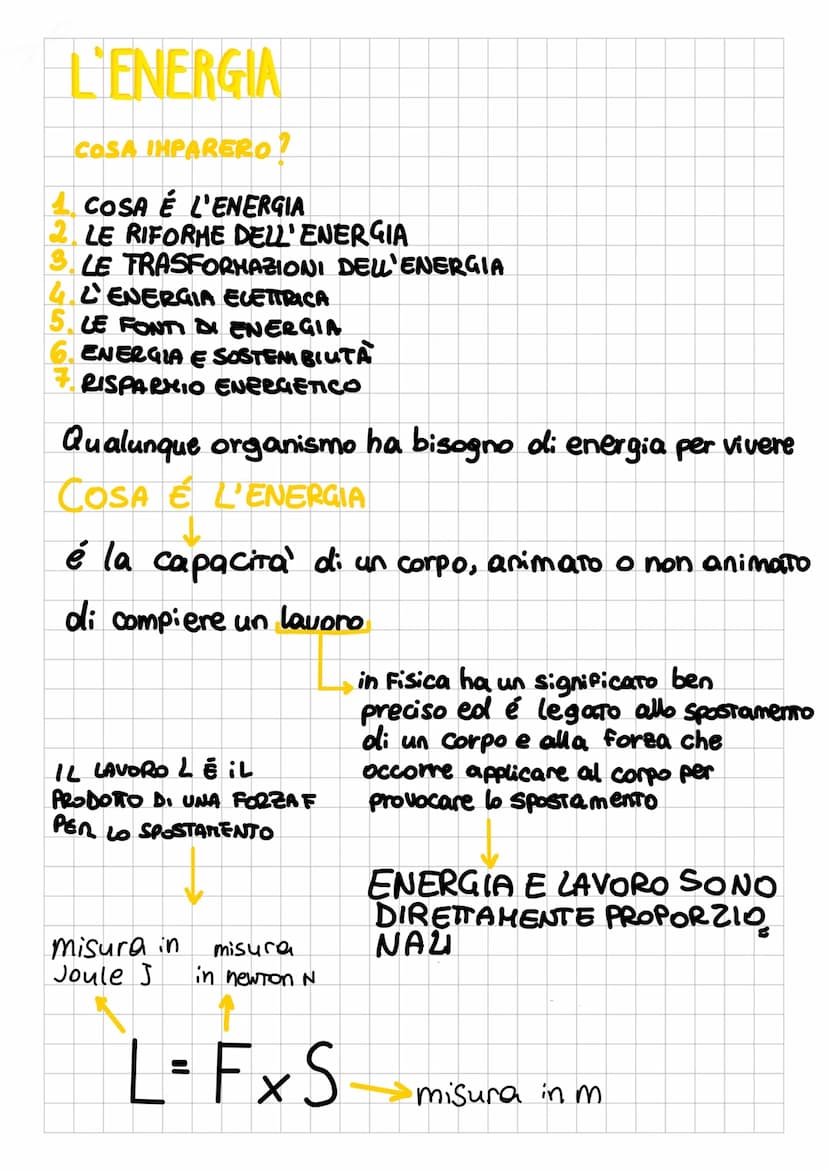 L'ENERGIA
COSA IMPARERO?
1. COSA É L'ENERGIA
2. LE RIFORME DELL'ENERGIA
3. LE TRASFORMAZIONI DELL'ENERGIA
4. L'ENERGIA ELETTRICA
5. LE FONTI DI ENERGIA
6. ENERGIA E SOSTENIBILITÀ
7. RISPARMIO ENERGETICO
Qualunque organismo ha bisogno di energia per vivere
COSA É L'ENERGIA
é la capacità di un corpo, animato o non animato
di compiere un lavoro
in Fisica ha un significato ben
preciso ed é legato allo spostamento
di un corpo e alla forza che
occorre applicare al corpo per
provocare lo spostamento
IL LAVORO L É iL
PRODOTTO DI UNA FORZA F
PER LO SPOSTAMENTO
ENERGIA E LAVORO SONO
DIRETTAMENTE PROPORZIO=
NALI
misura in
Joule J
misura
in newton N
L = F x S
misura in m